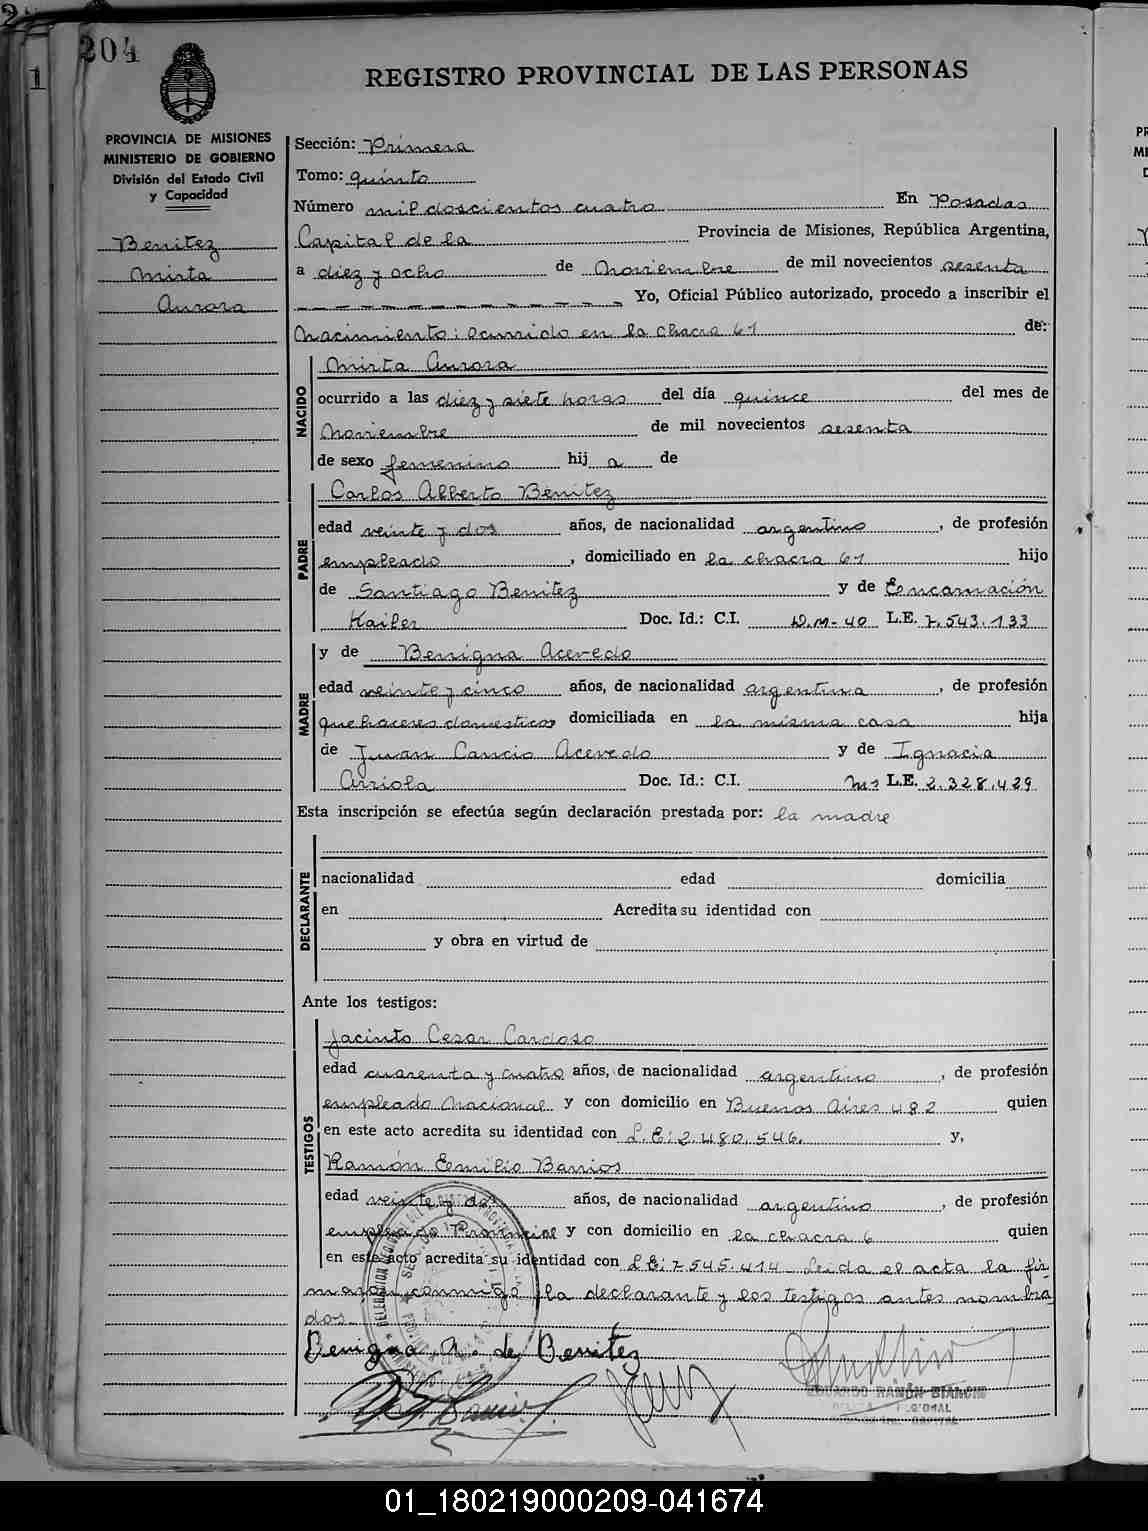 204
REGISTRO PROVINCIAL DE LAS PERSONAS
PROVINCIA DE MISIONES
MINISTERIO DE GOBIERNO
División del Estado Civil
y Capacidad
Benitez
Mirta
Aurora
Sección: Primera
Tomo: quinto
Número mil doscientos cuatro En Posadas
Capital de la Provincia de Misiones, República Argentina,
a diez y ocho de Noviembre de mil novecientos sesenta
Yo, Oficial Público autorizado, procedo a inscribir el
Nacimiento: ocurrido en la chacra 61 de:
NACIDO
Mirta Aurora
ocurrido a las diez y siete horas del día quince del mes de
Noviembre de mil novecientos sesenta
de sexo femenino hij a de
PADRE
Carlos Alberto Benitez
edad veinte y dos años, de nacionalidad argentino, de profesión
empleado, domiciliado en la chacra 61 hijo
de Santiago Benitez y de Encarnación
Kaifer Doc. Id.: C.I. D.M-40 L.E. 7.543.133
MADRE
y de Benigna Acevedo
edad veinte y cinco años, de nacionalidad argentina, de profesión
quehaceres domesticos domiciliada en la misma casa hija
de Juan Cancio Acevedo y de Ignacia
Arriola Doc. Id.: C.I. L.E. 2.328.429
Esta inscripción se efectúa según declaración prestada por: la madre
DECLARANTE
nacionalidad edad domicilia
en Acredita su identidad con
y obra en virtud de
Ante los testigos:
TESTIGOS
Jacinto Cesar Cardoso
edad cuarenta y cuatro años, de nacionalidad argentino, de profesión
empleado Nacional y con domicilio en Buenos Aires 482 quien
en este acto acredita su identidad con L.E: 2.480.546. y,
Ramón Emilio Barrios
edad veinte y dos años, de nacionalidad argentino, de profesión
empleado Provincial y con domicilio en la chacra 6 quien
en este acto acredita su identidad con L.E: 7.545.414 Leida el acta la fir-
maron conmigo la declarante y los testigos antes nombra
dos.
Benigna A. de Benitez
EDUARDO RAMÓN BIANCHI
01_180219000209-041674